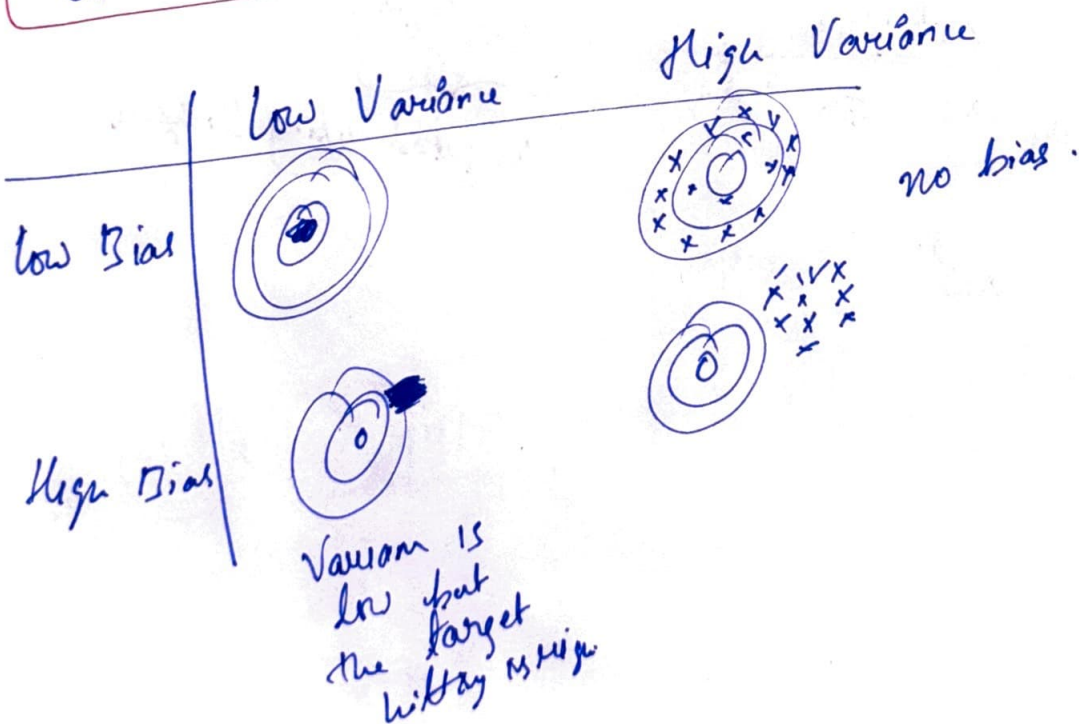 Low Variance
High Variance
Low Bias
no bias.
High Bias
is
low but
the target
hitting is high.